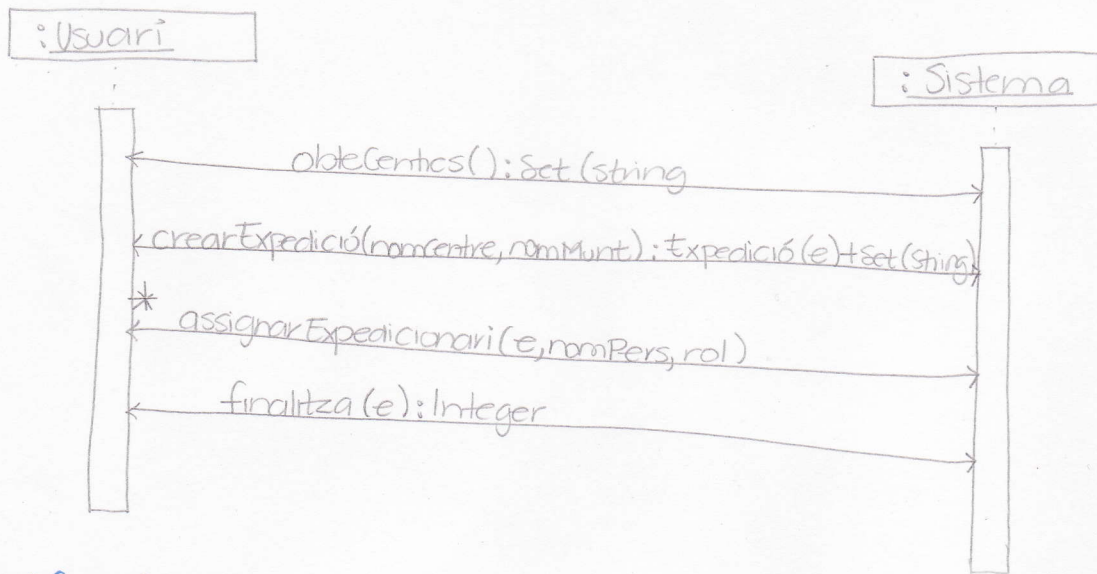 :Usuari
:Sistema
obteCentres():Set(String
crearExpedició(nomCentre, nomMunt): Expedició(e)+Set(String)
*
assignarExpedicionari(e, nomPers, rol)
finalitza(e): Integer